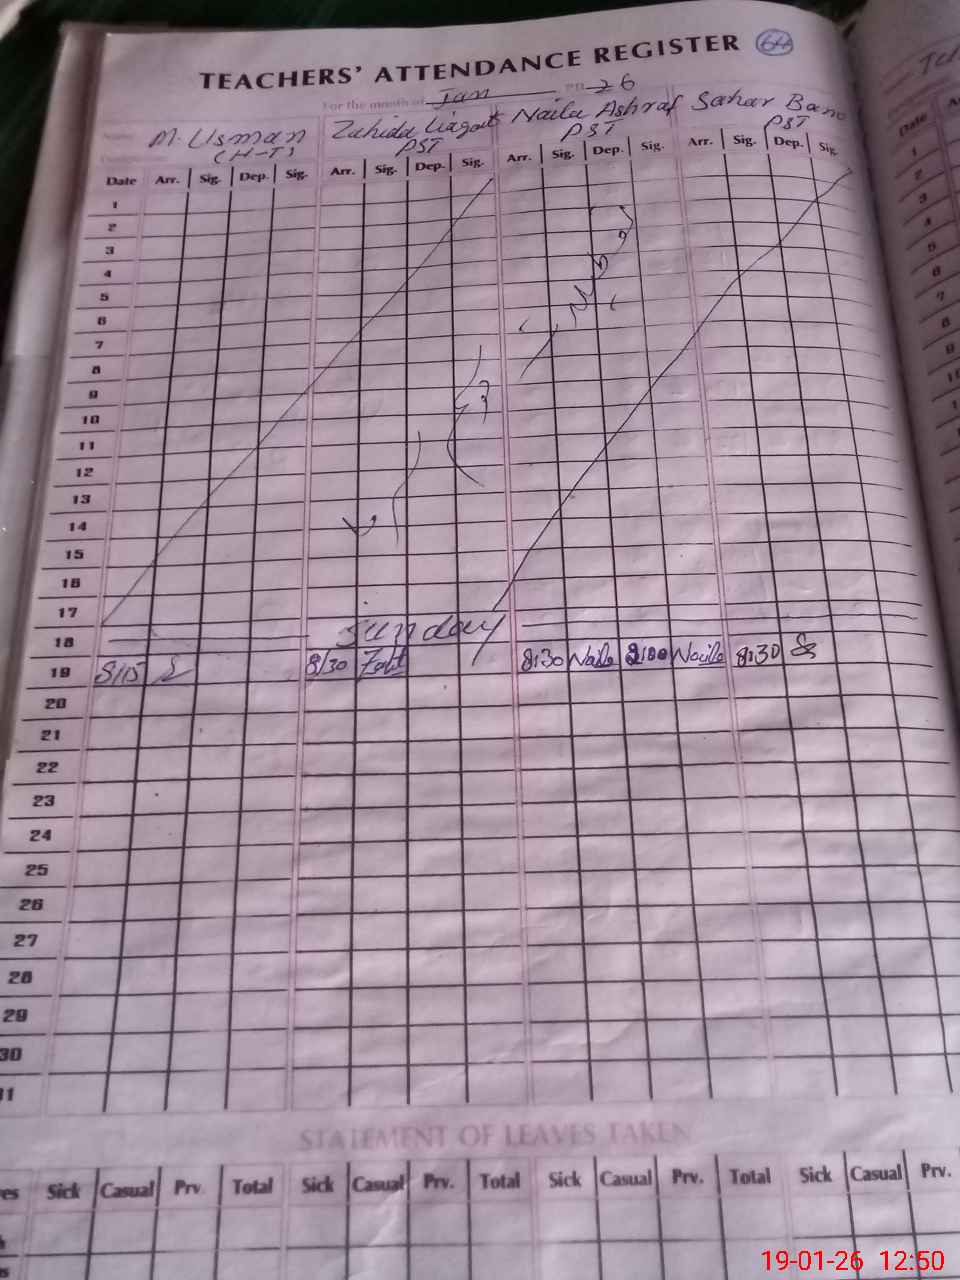 TEACHERS' ATTENDANCE REGISTER 64
For the month of Jan 26
Name M. Usman Zahida Liaqat Naila Ashraf Sahar Bano
(H-T) PST PST PST
Date Arr. Sig. Dep. Sig. Arr. Sig. Dep. Sig. Arr. Sig. Dep. Sig. Arr. Sig. Dep. Sig.
1
2
3
4
5
6
7
8
9
10
11
12
13
14
15
16
17
18 Sunday
19 8/15 8/30 8:30 Naila 2:00 Naila 8:30
20
21
22
23
24
25
26
27
28
29
30
31
STATEMENT OF LEAVES TAKEN
Sick Casual Prv. Total Sick Casual Prv. Total Sick Casual Prv. Total Sick Casual Prv.
19-01-26 12:50